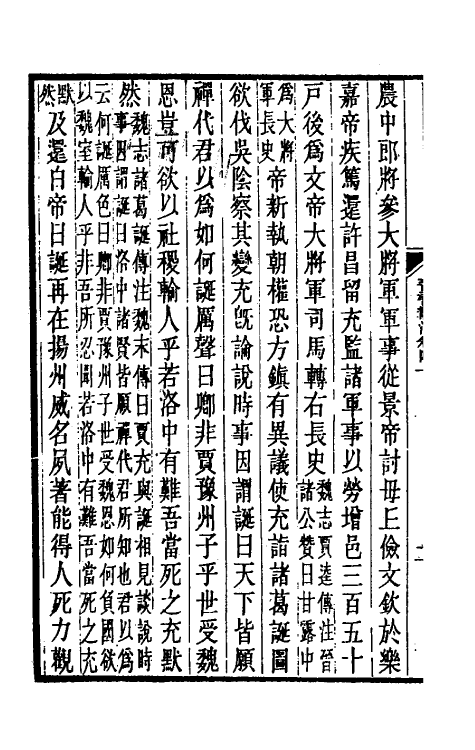 農中郎將參大將軍軍事從景帝討毋丘儉文欽於樂
嘉帝疾篤還許昌留充監諸軍事以勞增邑三百五十
戶後爲文帝大將軍司馬轉右長史魏志賈逵傳注晉
諸公贊曰甘露中
爲大將
軍長史帝新執朝權恐方鎮有異議使充詣諸葛誕圖
欲伐吳陰察其變充旣論說時事因謂誕曰天下皆願
禪代君以爲如何誕厲聲曰卿非賈豫州子乎世受魏
恩豈可欲以社稷輸人乎若洛中有難吾當死之充默
然魏志諸葛誕傳注魏末傳曰賈充與誕相見談說時
事因謂誕曰洛中諸賢皆願禪代君所知也君以爲
云何誕厲色曰卿非賈豫州子世受魏恩如何負國欲
以魏室輸人乎非吾所忍聞若洛中有難吾當死之充
默
然及還白帝曰誕再在揚州威名夙著能得人死力觀